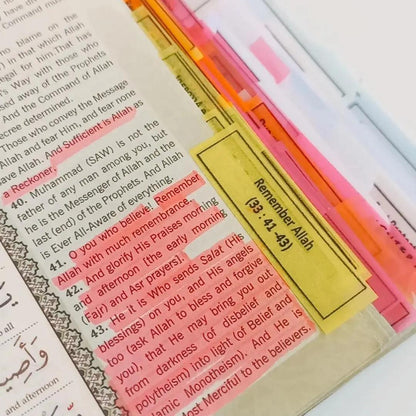 no blame on the
that which Allah
egal for him That has
's Way with those who
sed away of (the Prophets
And the Command of Allah
ecree determined.
Those who convey the Message
Allah and fear Him, and fear none
ave Allah. And Sufficient is Allah as
Reckoner.
40. Muhammad (SAW) is not the
father of any man among you, but
he is the Messenger of Allah and the
last (end) of the Prophets. And Allah
is Ever All-Aware of everything.
41. O you who believe! Remember
Allah with much remembrance.
42. And glorify His Praises morning
and afternoon (the early morning
Fajr) and Asr prayers).
43. He it is Who sends Salat (His
blessings) on you, and His angels
too (ask Allah to bless and forgive
you), that He may bring you out
from darkness (of disbelief and
polytheism) into light (of Belief and
lamic Monotheism). And He is
ost Merciful to the believers.
Remember Allah
(33 : 41 -43)
all
and afternoon